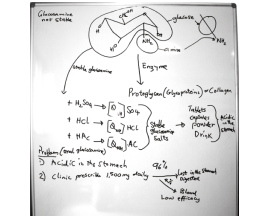 Glucosamine
not stable
glucose
NH₂
NH₂
amine
stable glucosamine
Enzyme
Proteoglycan (Glycoprotein) = Collagen
+ H₂SO₄ → SO₄
+ HCl → HCl
+ HAc → AC
Stable
glucosamine
Salts
Tablets
capsules
powder
Drink
Acidic
in the
stomach
Problems (oral glucosamine)
1) Acidic in the stomach
2) Clinic prescribe 1,500mg daily
90%
lost in the stomach
digested
Blood
Low efficacy